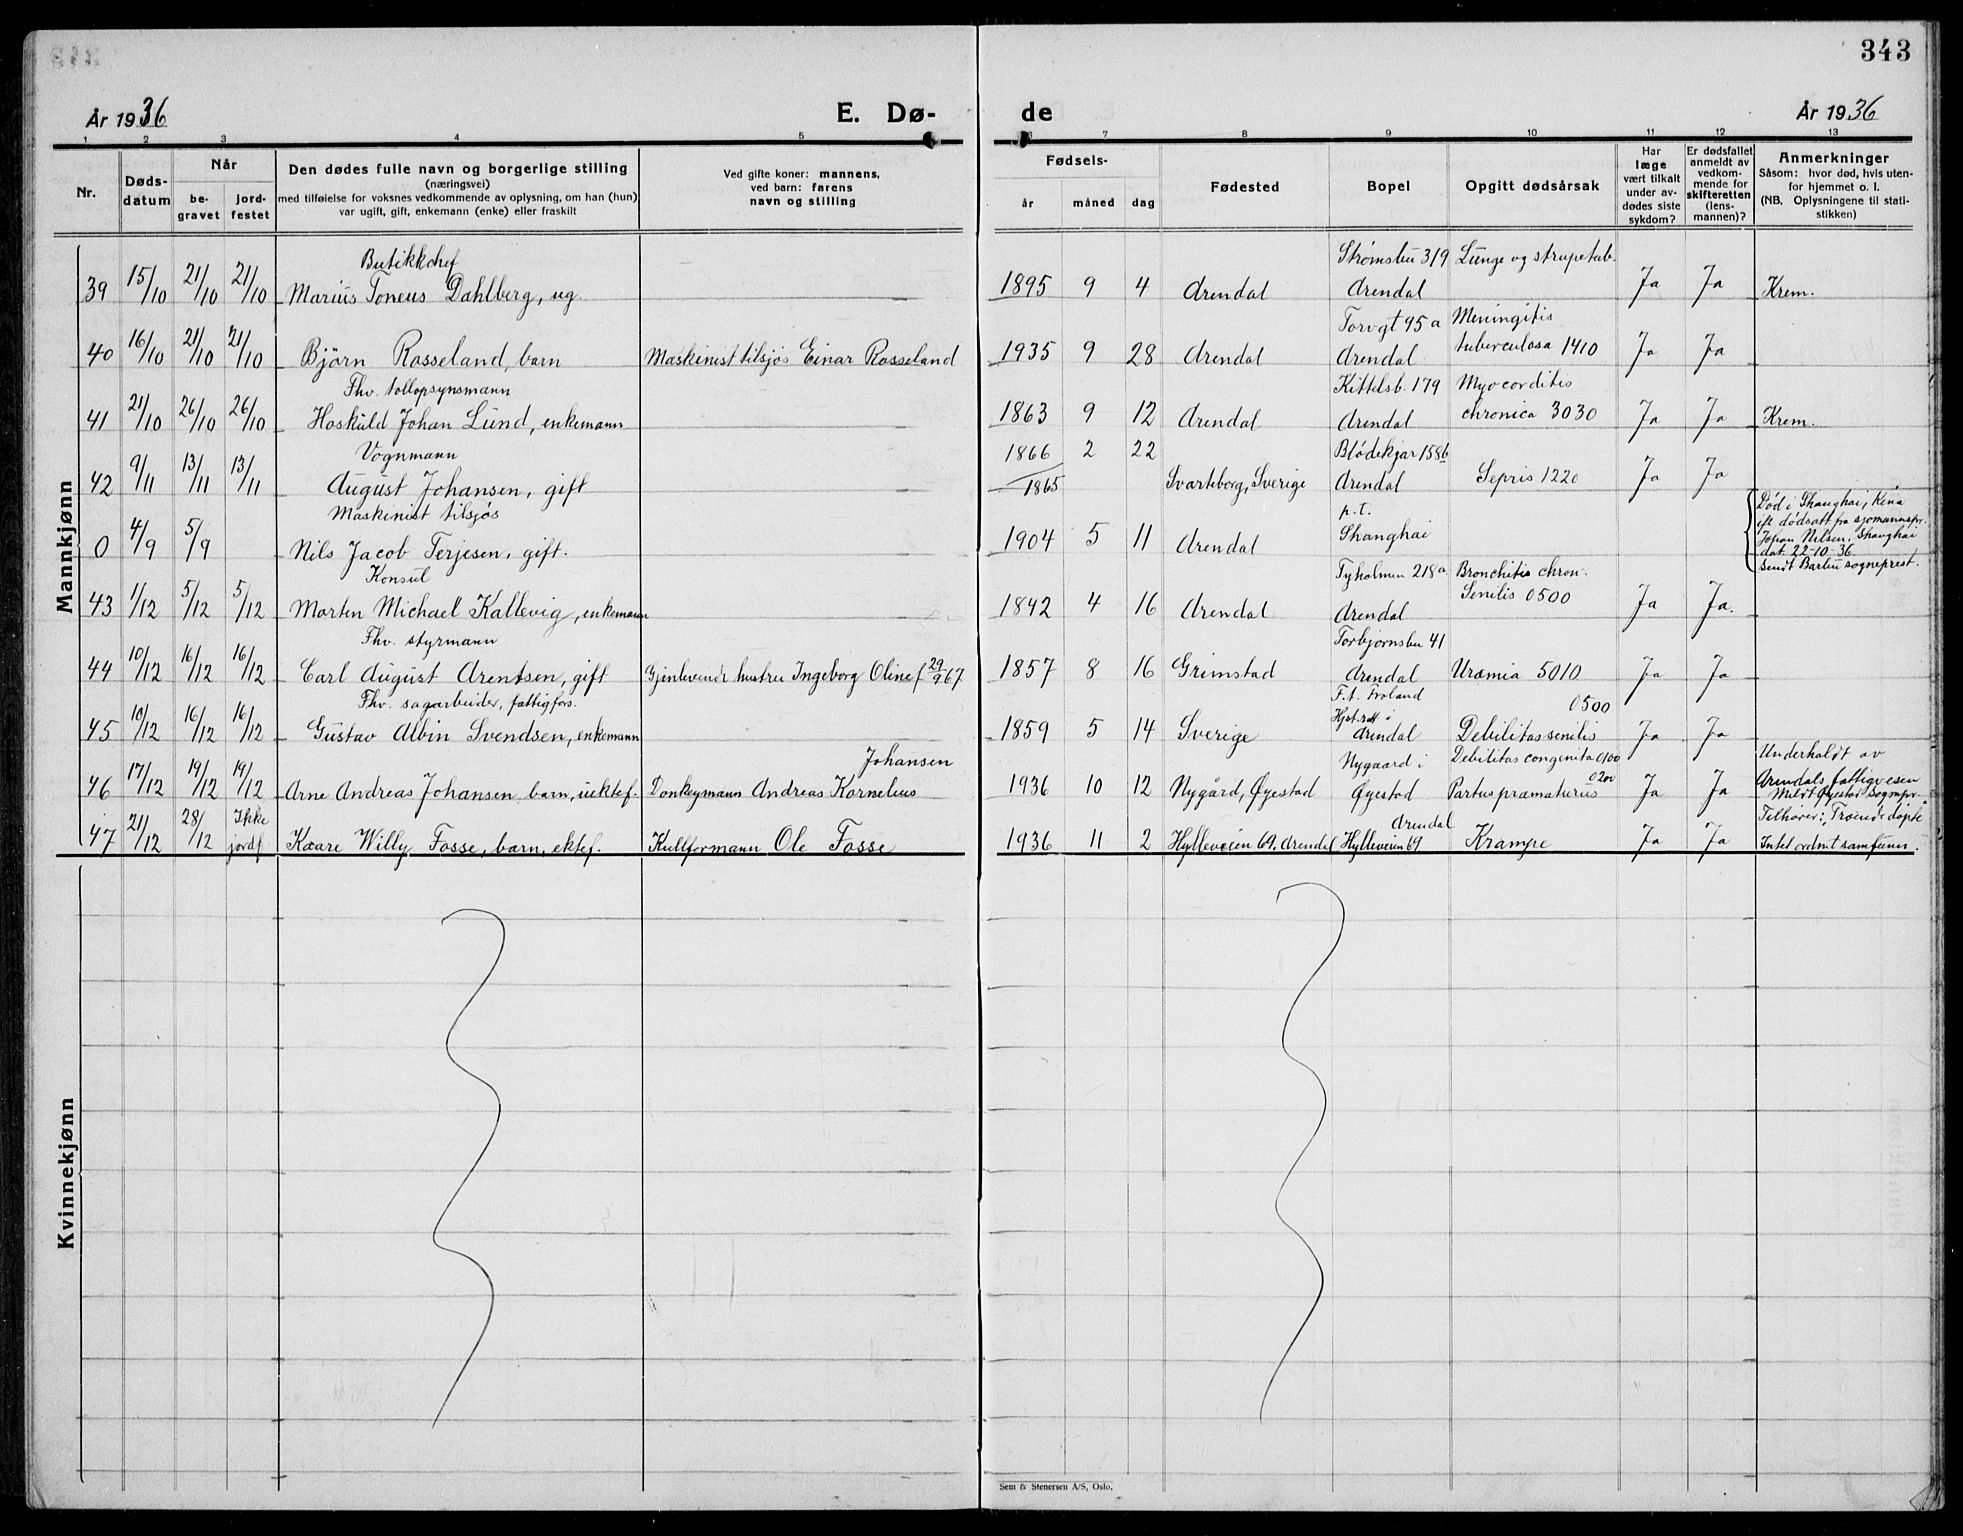 343
År 1936
E. Dø-
de
År 1936
1 2 3 4 5 6 7 8 9 10 11 12 13
Nr.
Døds-
datum
Når
be-
gravet
jord-
festet
Den dødes fulle navn og borgerlige stilling
(næringsvei)
med tilføielse for voksnes vedkommende av oplysning, om han (hun)
var ugift, gift, enkemann (enke) eller fraskilt
Ved gifte koner: mannens,
ved barn: farens
navn og stilling
Fødsels-
år måned dag
Fødested
Bopel
Opgitt dødsårsak
Har
læge
vært tilkalt
under av-
dødes siste
sykdom?
Er dødsfallet
anmeldt av
vedkom-
mende for
skifteretten
(lens-
mannen)?
Anmerkninger
Såsom: hvor død, hvis uten-
for hjemmet o. l.
(NB. Oplysningene til stati-
stikken)
Mannkjønn
Butikkchef Strømsbu 319 Lunge og strupetub.
39 15/10 21/10 21/10 Marius Toneus Dahlberg, ug. 1895 9 4 Arendal Arendal Ja Ja Krem.
Torvgt 95 a Meningitis
40 16/10 21/10 21/10 Bjørn Rosseland, barn Maskinist tilsjøs Einar Rosseland 1935 9 28 Arendal Arendal tuberculosa 1410 Ja Ja
Fhv. tollopsynsmann Kittelsb. 179 Myocorditis
41 21/10 26/10 26/10 Hoskuld Johan Lund, enkemann 1863 9 12 Arendal Arendal chronica 3030 Ja Ja Krem.
Vognmann 1866 2 22 Blødekjær 158b
42 9/11 13/11 13/11 August Johansen, gift 1865 Svarteborg, Sverige Arendal Sepsis 1220 Ja Ja
Maskinist tilsjøs p.t.
0 4/9 5/9 Nils Jacob Terjesen, gift. 1904 5 11 Arendal Shanghai
Død i Shanghai, Kina
ift dødsatt fra sjømannspr.
Nilsen, Shanghai
dat. 22-10-36.
sendt Barbu sogneprest.
Konsul Tyholmen 218a. Bronchitis chron.
43 1/12 5/12 5/12 Morten Michael Kallevig, enkemann 1842 4 16 Arendal Arendal Senilis 0500 Ja Ja.
Fhv. styrmann Torbjørnsbu 41
44 10/12 16/12 16/12 Carl August Arentsen, gift Gjenlevende hustru Ingeborg Oline f 29/9 67 1857 8 16 Grimstad Arendal Uræmia 5010 Ja Ja
Fhv. sagarbeider, fattigfors. F.t. Froland 0500
45 10/12 16/12 16/12 Gustav Albin Svendsen, enkemann 1859 5 14 Sverige Hjst.rett i Arendal Debilitas senilis Ja Ja
Johansen Nygaard i Debilitas congenita 0100 Underholdt av
46 17/12 19/12 19/12 Arne Andreas Johansen, barn, uektef. Donkeymann Andreas Kornelius 1936 10 12 Nygård, Øyestad Øyestad Partus præmaturus 0200 Ja Ja Arendals fattigvesen
Meldt Øyestad sognepr.
Arendal Tilhører: Troende døpte
47 21/12 28/12 Ikke jordf Kaare Willy Fosse, barn, ektef. Kullformann Ole Fosse 1936 11 2 Hylleveien 69, Arendal Hylleveien 69 Krampe Ja Ja Intet ordnet samfunn.
Kvinnekjønn
Sem & Stenersen A/S, Oslo.